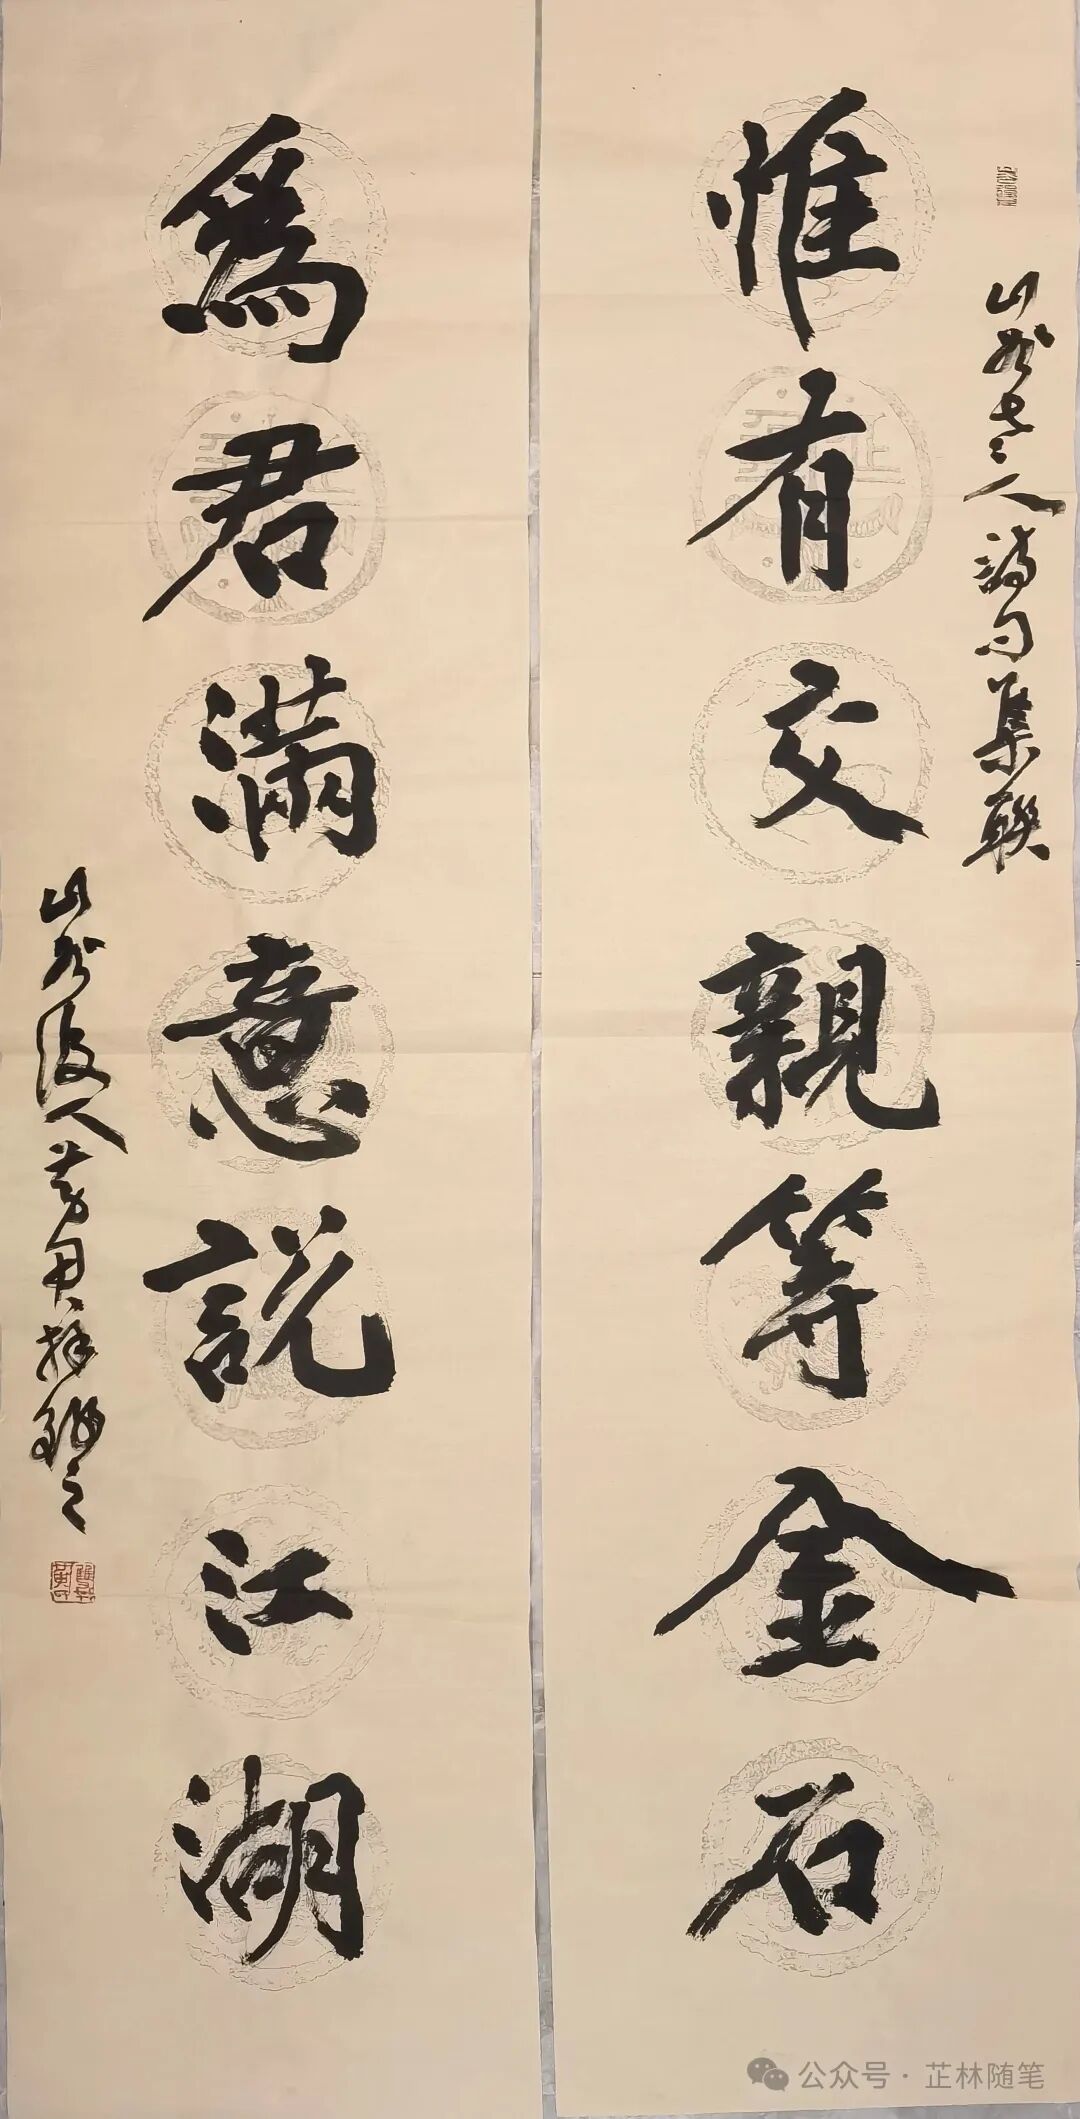 山谷老人詩句集聯
惟有交親等金石
為君滿意說江湖
山谷後人黃君
公众号·芷林随笔